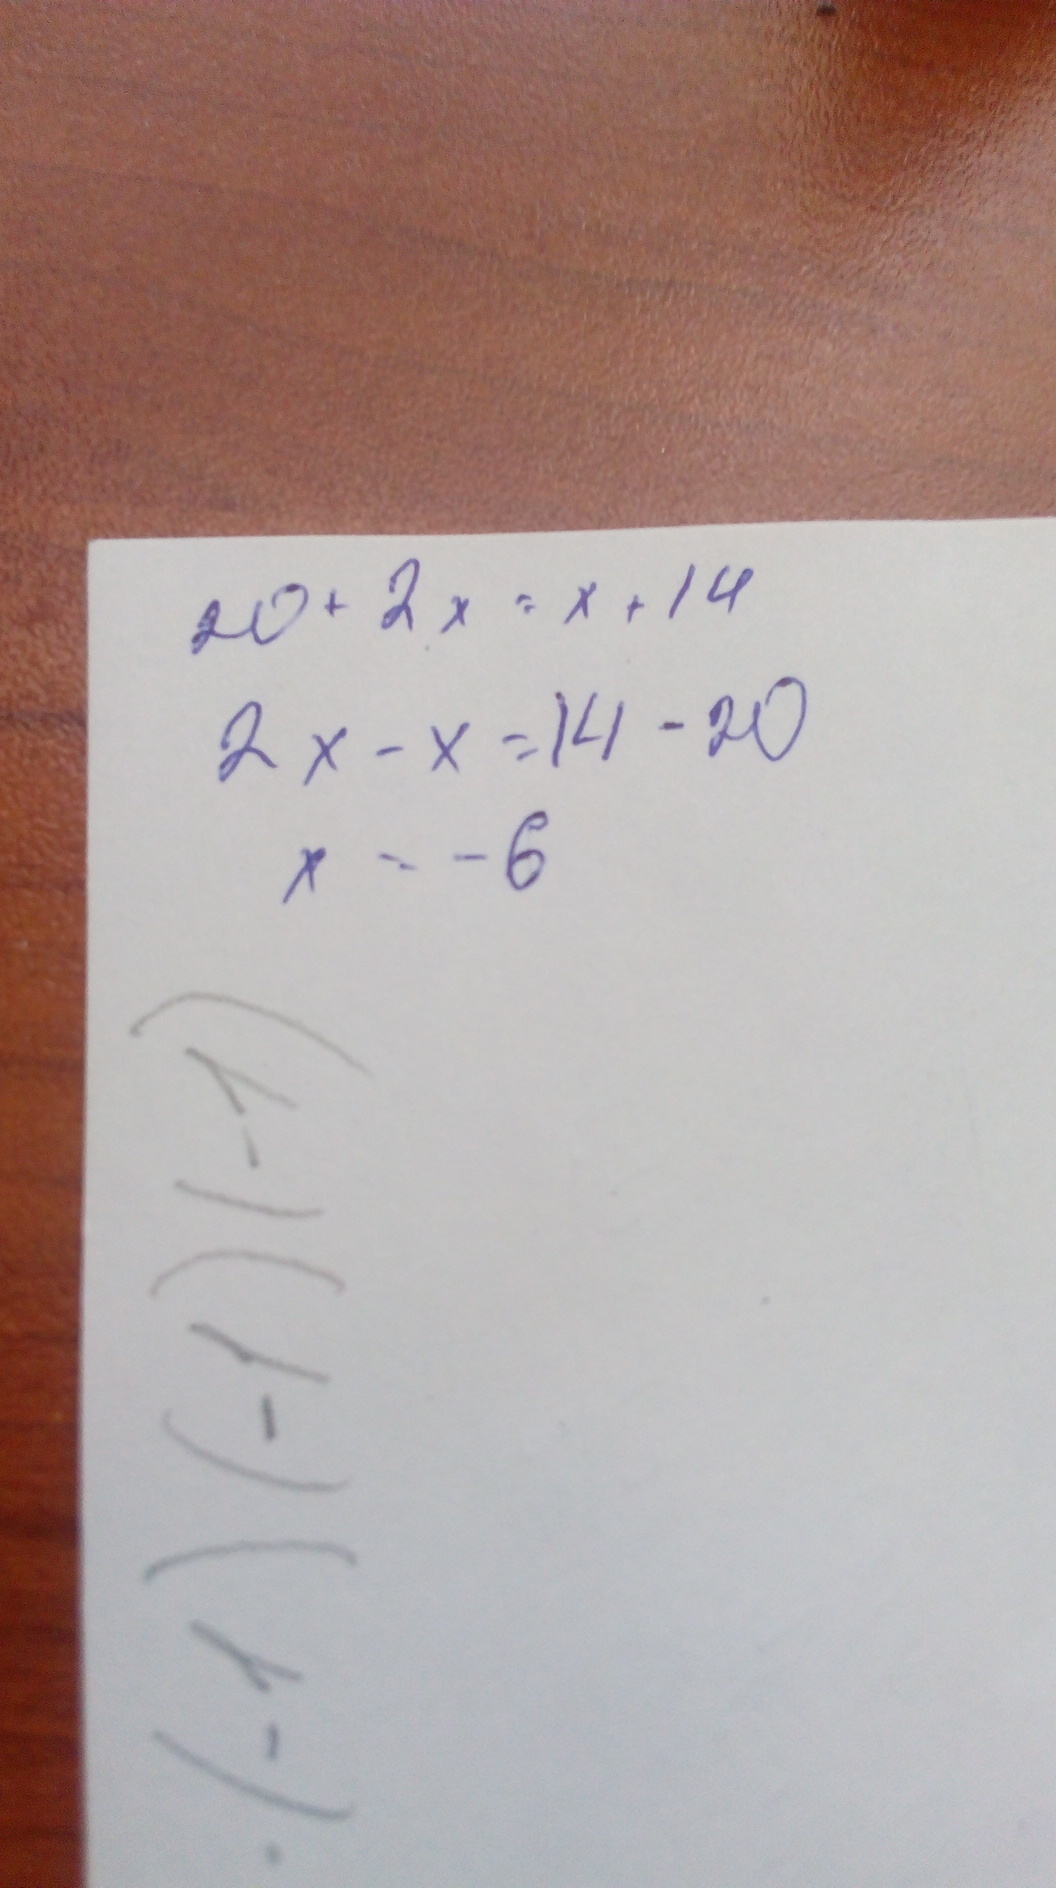 20 + 2x = x + 14
2x - x = 14 - 20
x = -6
· (-1) (-1) (-1)